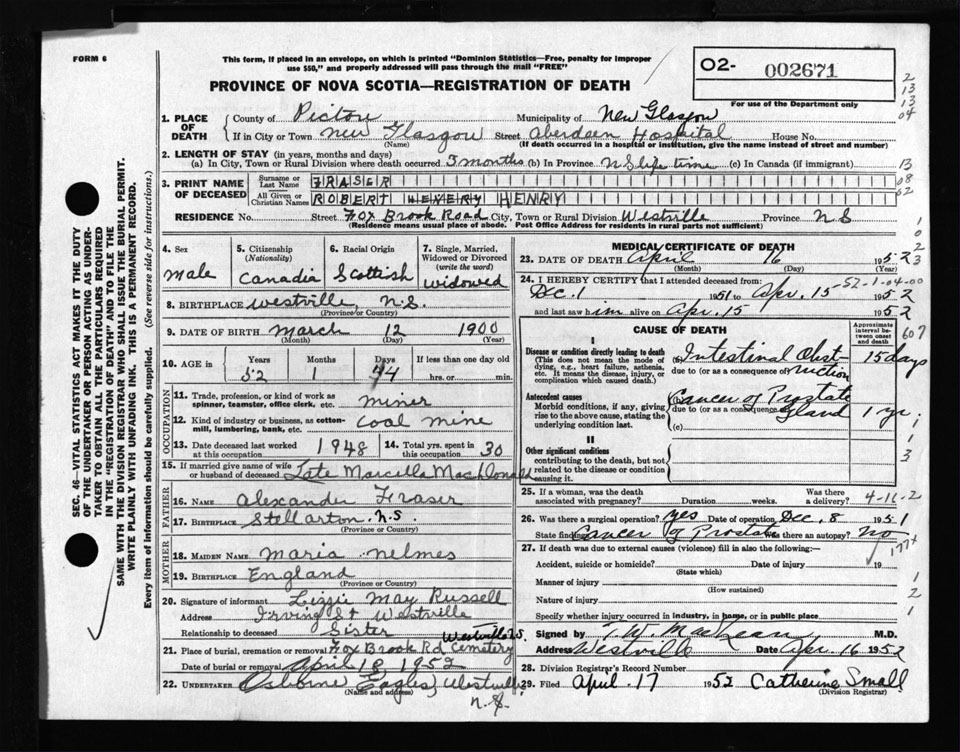 FORM 6
This form, if placed in an envelope, on which is printed "Dominion Statistics—Free, penalty for improper
use $50," and properly addressed will pass through the mail "FREE"
PROVINCE OF NOVA SCOTIA—REGISTRATION OF DEATH
02- 002671
For use of the Department only
2
13
13
04
1. PLACE OF DEATH
County of Pictou Municipality of New Glasgow
If in City or Town New Glasgow Street Aberdeen Hospital House No.
(Name) (If death occurred in a hospital or institution, give the name instead of street and number)
2. LENGTH OF STAY (in years, months and days)
(a) In City, Town or Rural Division where death occurred 5 months (b) In Province N S life time (c) In Canada (if immigrant) 13
3. PRINT NAME OF DECEASED
Surname or Last Name FRASER 08
All Given or Christian Names ROBERT HENERY HENRY 02
RESIDENCE No. Street Fox Brook Road City, Town or Rural Division Westville Province N S
(Residence means usual place of abode. Post Office Address for residents in rural parts not sufficient)
4. Sex male
5. Citizenship (Nationality) Canadia
6. Racial Origin Scottish
7. Single, Married, Widowed or Divorced (write the word) widowed
8. BIRTHPLACE Westville, N.S.
(Province or Country)
9. DATE OF BIRTH March 12 1900
(Month) (Day) (Year)
10. AGE in Years Months Days If less than one day old
52 1 4 hrs. or min.
OCCUPATION
11. Trade, profession, or kind of work as spinner, teamster, office clerk, etc. miner
12. Kind of industry or business, as cotton-mill, lumbering, bank, etc. coal mine
13. Date deceased last worked at this occupation 1948 14. Total yrs. spent in this occupation 30
15. If married give name of wife or husband of deceased Late Marcella MacDonald
FATHER
16. NAME Alexander Fraser
17. BIRTHPLACE Stellarton, N.S.
(Province or Country)
MOTHER
18. MAIDEN NAME Maria Nelmes
19. BIRTHPLACE England
(Province or Country)
20. Signature of informant Lizzie May Russell
Address Irving St Westville
Relationship to deceased Sister
21. Place of burial, cremation or removal Fox Brook Rd Cemetery Westville N.S.
Date of burial or removal April 18, 1952
22. UNDERTAKER Osborne Eagles, Westville, N.S.
(Name and address)
MEDICAL CERTIFICATE OF DEATH
23. DATE OF DEATH April 16 1952
(Month) (Day) (Year)
24. I HEREBY CERTIFY that I attended deceased from:
Dec. 1 1951 to Apr. 15 1952
52-1-04-00
and last saw him alive on Apr. 15 1952
CAUSE OF DEATH
Approximate interval between onset and death
607
I
Disease or condition directly leading to death
(This does not mean the mode of dying, e.g., heart failure, asthenia, etc. It means the disease, injury, or complication which caused death.)
(a) Intestinal Obstruction 15 days
due to (or as a consequence of)
Antecedent causes
Morbid conditions, if any, giving rise to the above cause, stating the underlying condition last.
Cancer of Prostate Gland 1 yr.
due to (or as a consequence of)
(c)
II
Other significant conditions
contributing to the death, but not related to the disease or condition causing it.
25. If a woman, was the death associated with pregnancy? Duration weeks. Was there a delivery?
4-16-2
26. Was there a surgical operation? yes Date of operation Dec. 8 1951
State findings Cancer of Prostate Was there an autopsy? No
27. If death was due to external causes (violence) fill in also the following:—
Accident, suicide or homicide? Date of injury 19
(State which)
Manner of injury
(How sustained)
Nature of injury
Specify whether injury occurred in industry, in home, or in public place
Signed by T. W. MacLean M.D.
Address Westville Date Apr. 16 1952
28. Division Registrar's Record Number
29. Filed April 17 1952 Catherine Small
(Division Registrar)
SEC. 46—VITAL STATISTICS ACT MAKES IT THE DUTY
OF THE UNDERTAKER OR PERSON ACTING AS UNDER-
TAKER TO OBTAIN ALL THE PARTICULARS REQUIRED
IN THE "REGISTRATION OF DEATH" AND TO FILE THE
SAME WITH THE DIVISION REGISTRAR WHO SHALL ISSUE THE BURIAL PERMIT.
WRITE PLAINLY WITH UNFADING INK. THIS IS A PERMANENT RECORD.
Every item of information should be carefully supplied. (See reverse side for instructions.)